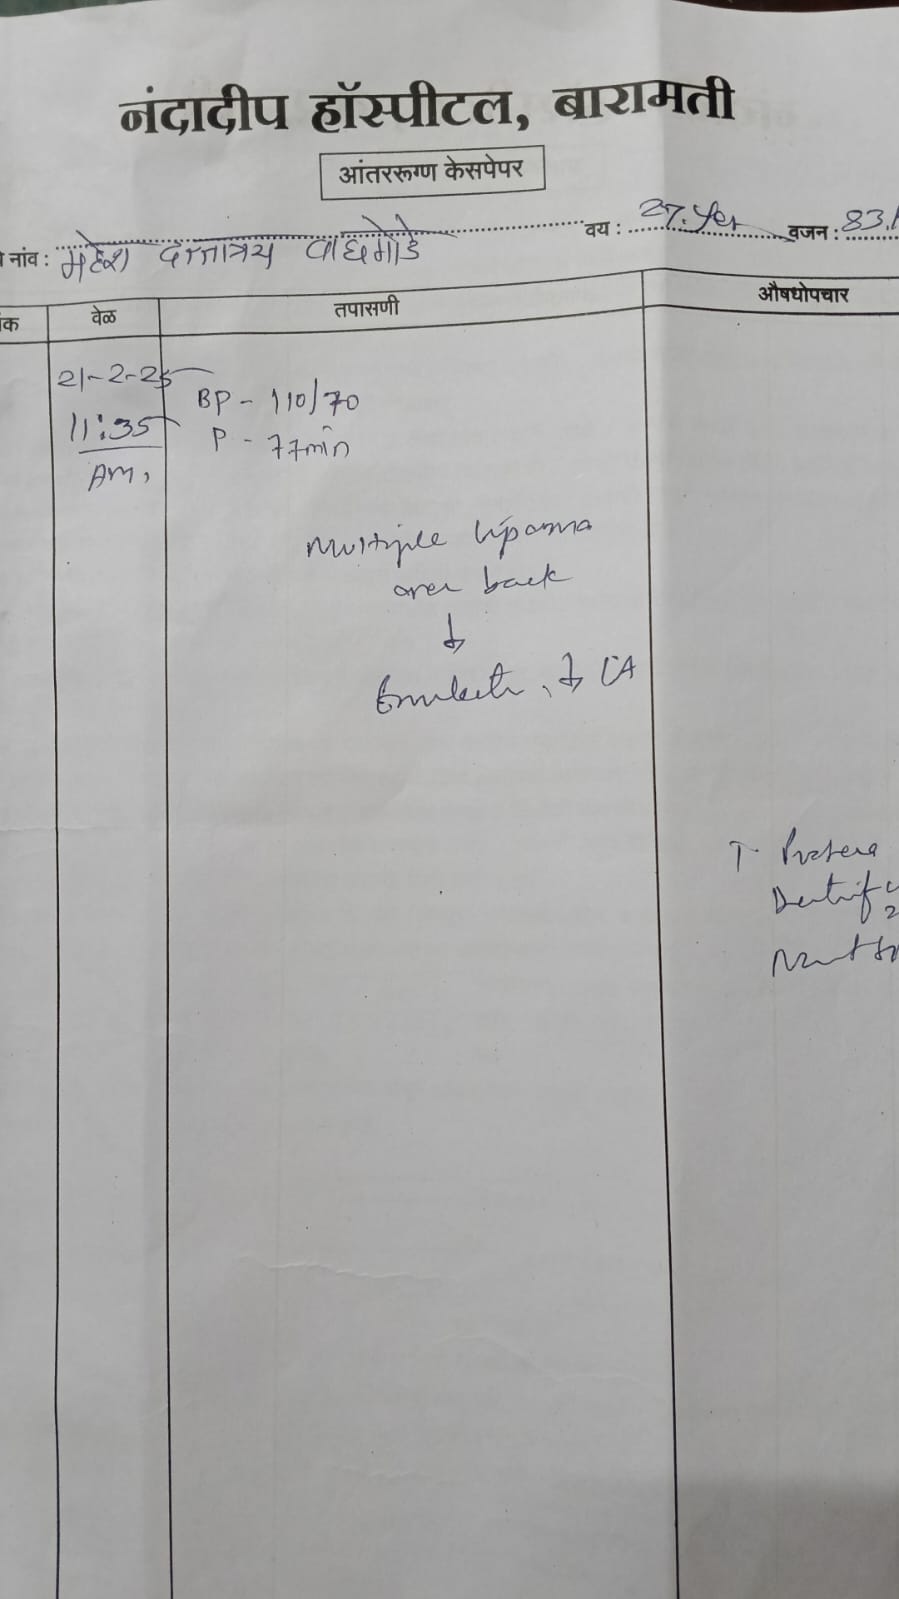 नंदादीप हॉस्पीटल, बारामती
आंतररूग्ण केसपेपर
नांव : महेश दत्तात्रय वाघमोडे वय : 27. yer वजन : 83.
वेळ तपासणी औषधोपचार
21-2-25
BP - 110/70
11:35
P - 77min
AM,
Multiple lipoma
over back
↓
LA
T